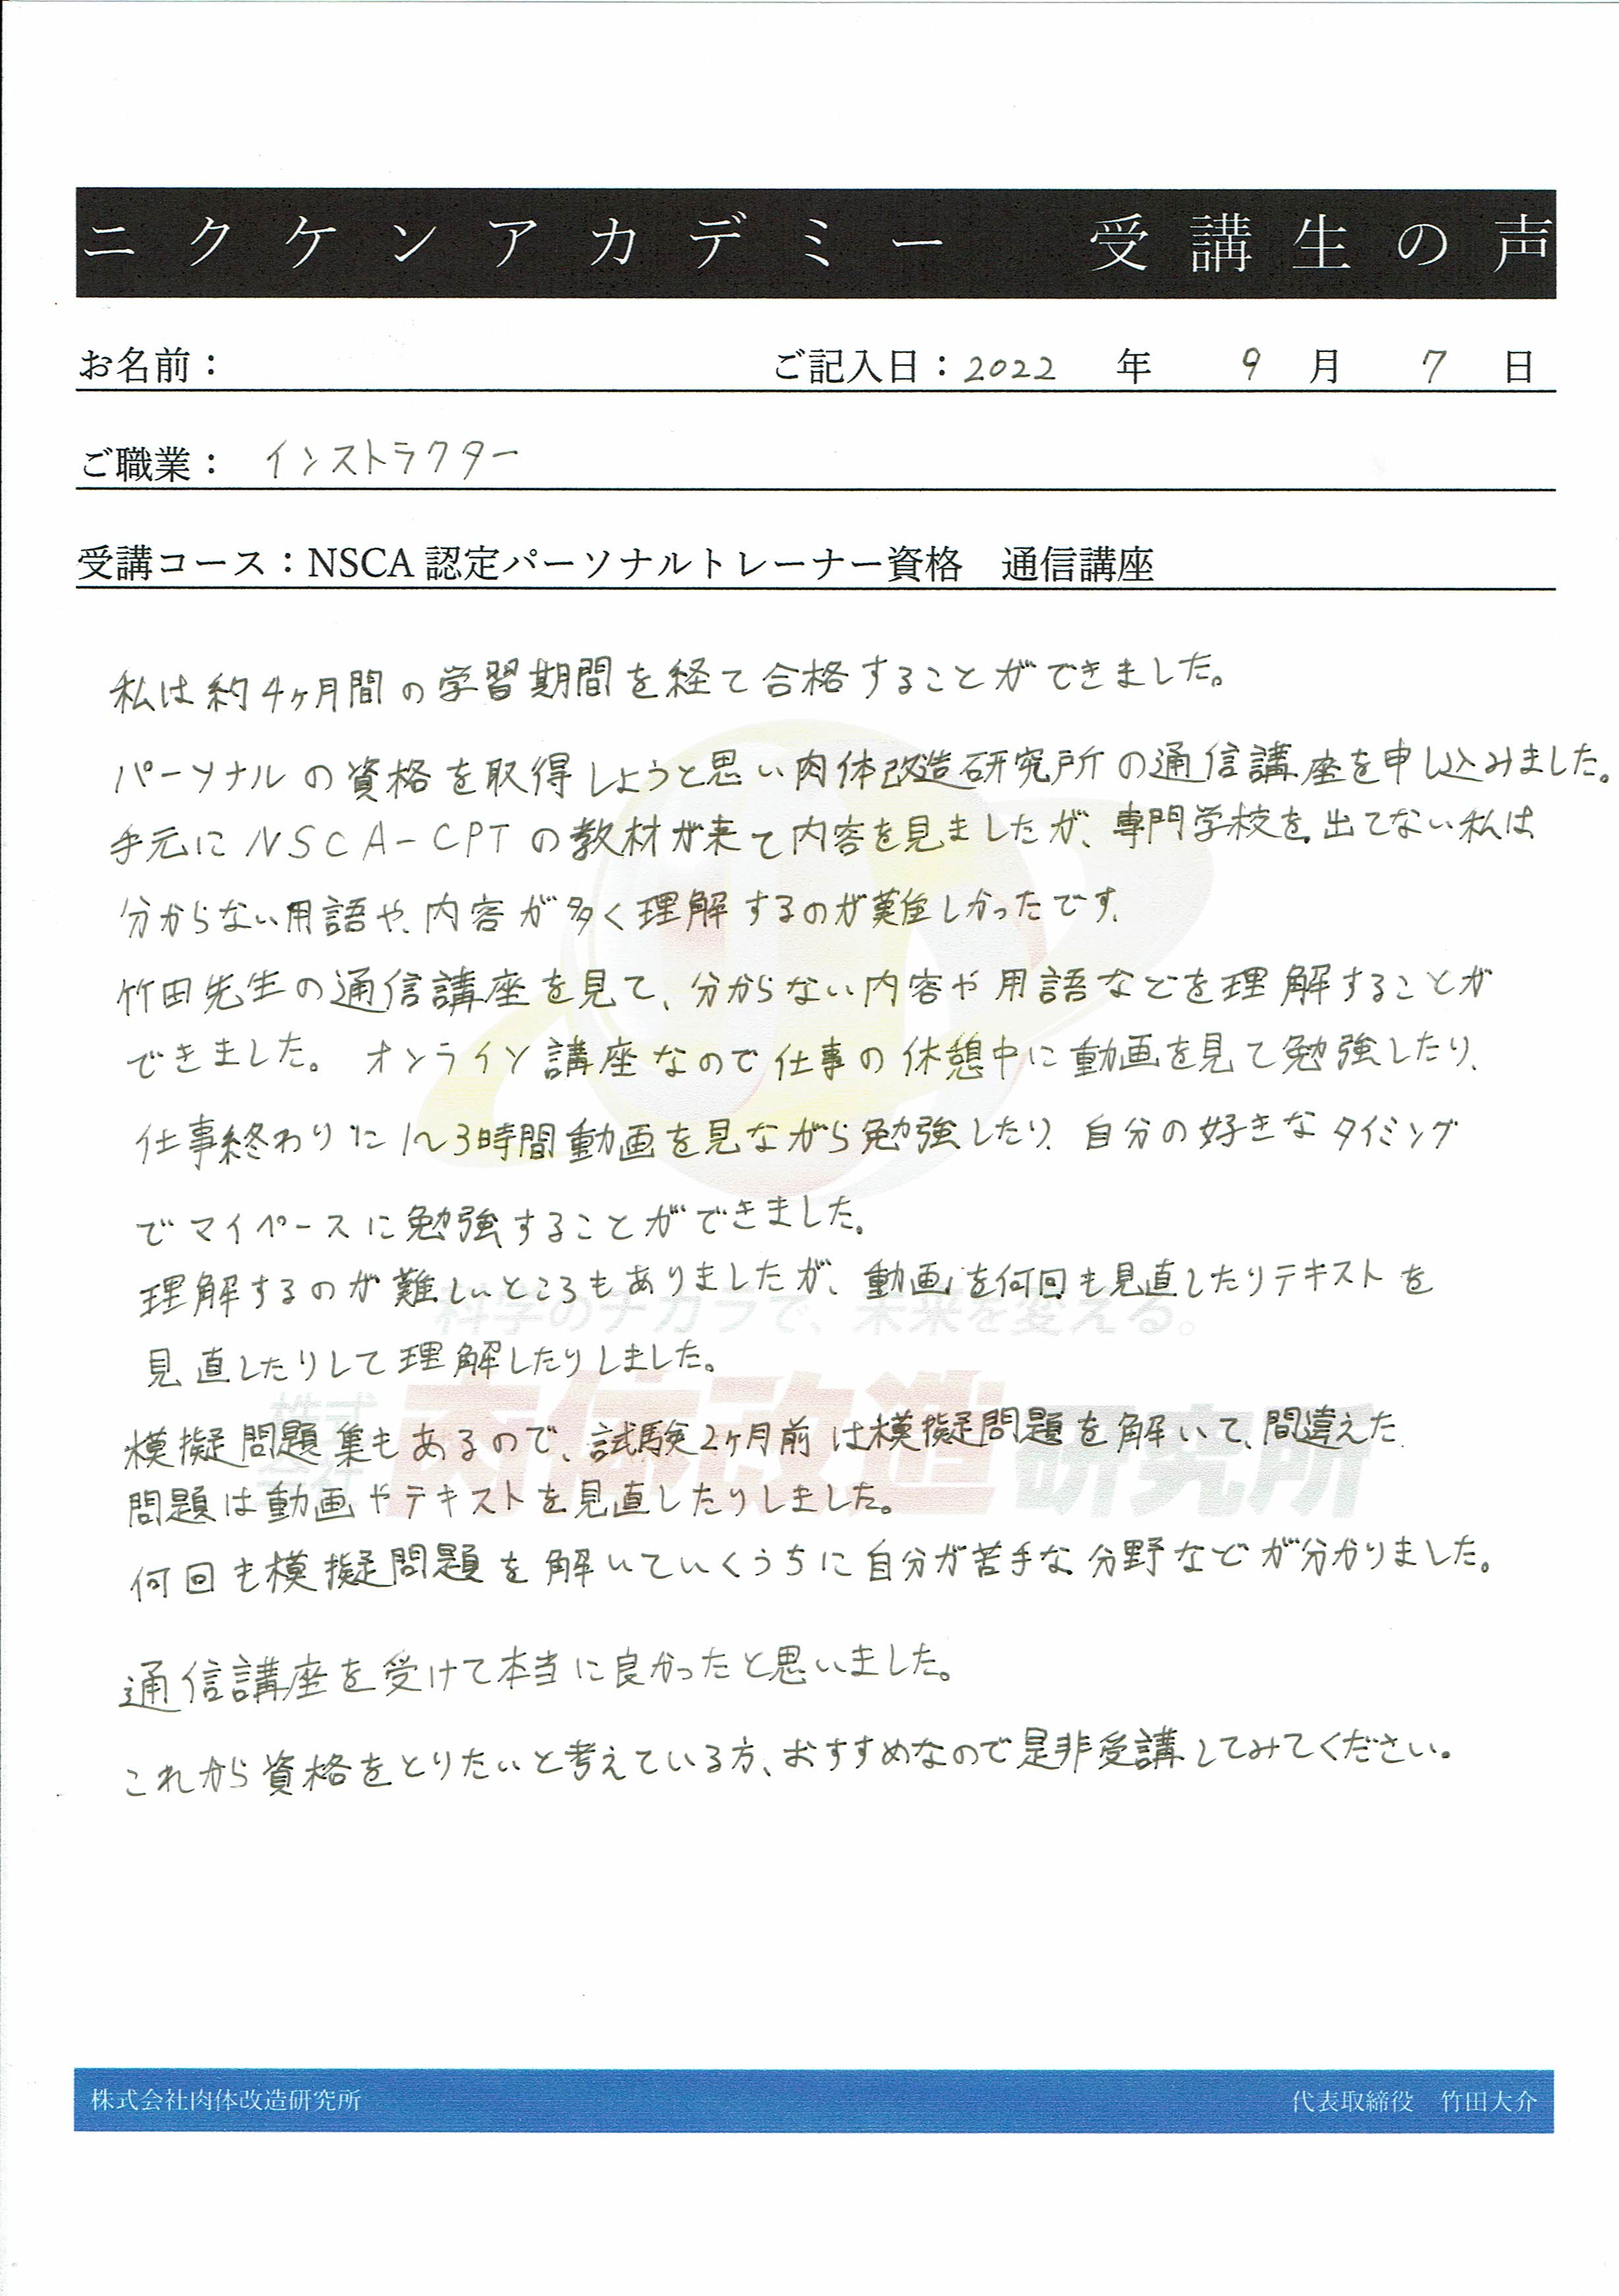 ニクケンアカデミー 受講生の声
お名前： ご記入日：2022 年 9 月 7 日
ご職業： インストラクター
受講コース：NSCA 認定パーソナルトレーナー資格 通信講座
私は約4ヶ月間の学習期間を経て合格することができました。
パーソナルの資格を取得しようと思い肉体改造研究所の通信講座を申し込みました。
手元にNSCA-CPTの教材が来て内容を見ましたが、専門学校を出てない私は
分からない用語や、内容が多く理解するのが難しかったです。
竹田先生の通信講座を見て、分からない内容や用語などを理解することが
できました。 オンライン講座なので仕事の休憩中に動画を見て勉強したり、
仕事終わりに1〜3時間動画を見ながら勉強したり、自分の好きなタイミング
でマイペースに勉強することができました。
理解するのが難しいところもありましたが、動画を何回も見直したりテキストを
科学のチカラで、未来を変える。
見直したりして理解したりしました。
株式会社 肉体改造研究所
模擬問題集もあるので、試験2ヶ月前は模擬問題を解いて、間違えた
問題は動画やテキストを見直したりしました。
何回も模擬問題を解いていくうちに自分が苦手な分野などが分かりました。
通信講座を受けて本当に良かったと思いました。
これから資格をとりたいと考えている方、おすすめなので是非受講してみてください。
株式会社肉体改造研究所 代表取締役 竹田大介